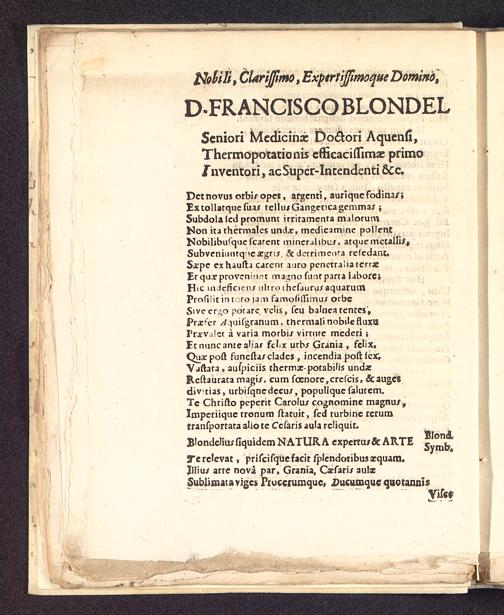 Nobili, Clarissimo, Expertissimoque Domino,
D. FRANCISCO BLONDEL
Seniori Medicinæ Doctori Aquensi,
Thermopotationis efficacissimæ primo
Inventori, ac Super-Intendenti &c.
Det novus orbis opes, argenti, aurique fodinas;
Extollatque suas tellus Gangetica gemmas;
Subdola sed promunt irritamenta malorum
Non ita thermales undæ, medicamine pollent
Nobilibusque scatent mineralibus, atque metallis,
Subveniuntque ægris, & detrimenta refedant.
Sæpe exhausta carent auro penetralia terræ
Et quæ proveniunt magno sunt parta labore;
Hic indeficiens ultro thesaurus aquarum
Prosilit in toto jam famosissimus orbe
Sive ergo potare velis, seu balnea tentes,
Præfer Aquisgranum, thermali nobile fluxu
Prævalet à varia morbis virtute mederi;
Et nunc ante alias felix urbs Grania, felix,
Quæ post funestas clades, incendia post sex,
Vastata, auspiciis thermæ-potabilis undæ
Restaurata magis, cum fœnore, crescis, & auges
divitias, urbisque decus, populique salutem.
Te Christo peperit Carolus cognomine magnus,
Imperiique tronum statuit, sed turbine rerum
transportata alio te Cesaris aula reliquit.
Blondelius siquidem NATURA expertus & ARTE
Blond.
Symb.
Te relevat, priscisque facit splendoribus æquam.
Illius arte novâ par, Grania, Cæsaris aulæ
Sublimata viges Procerumque, Ducumque quotannis
Visce